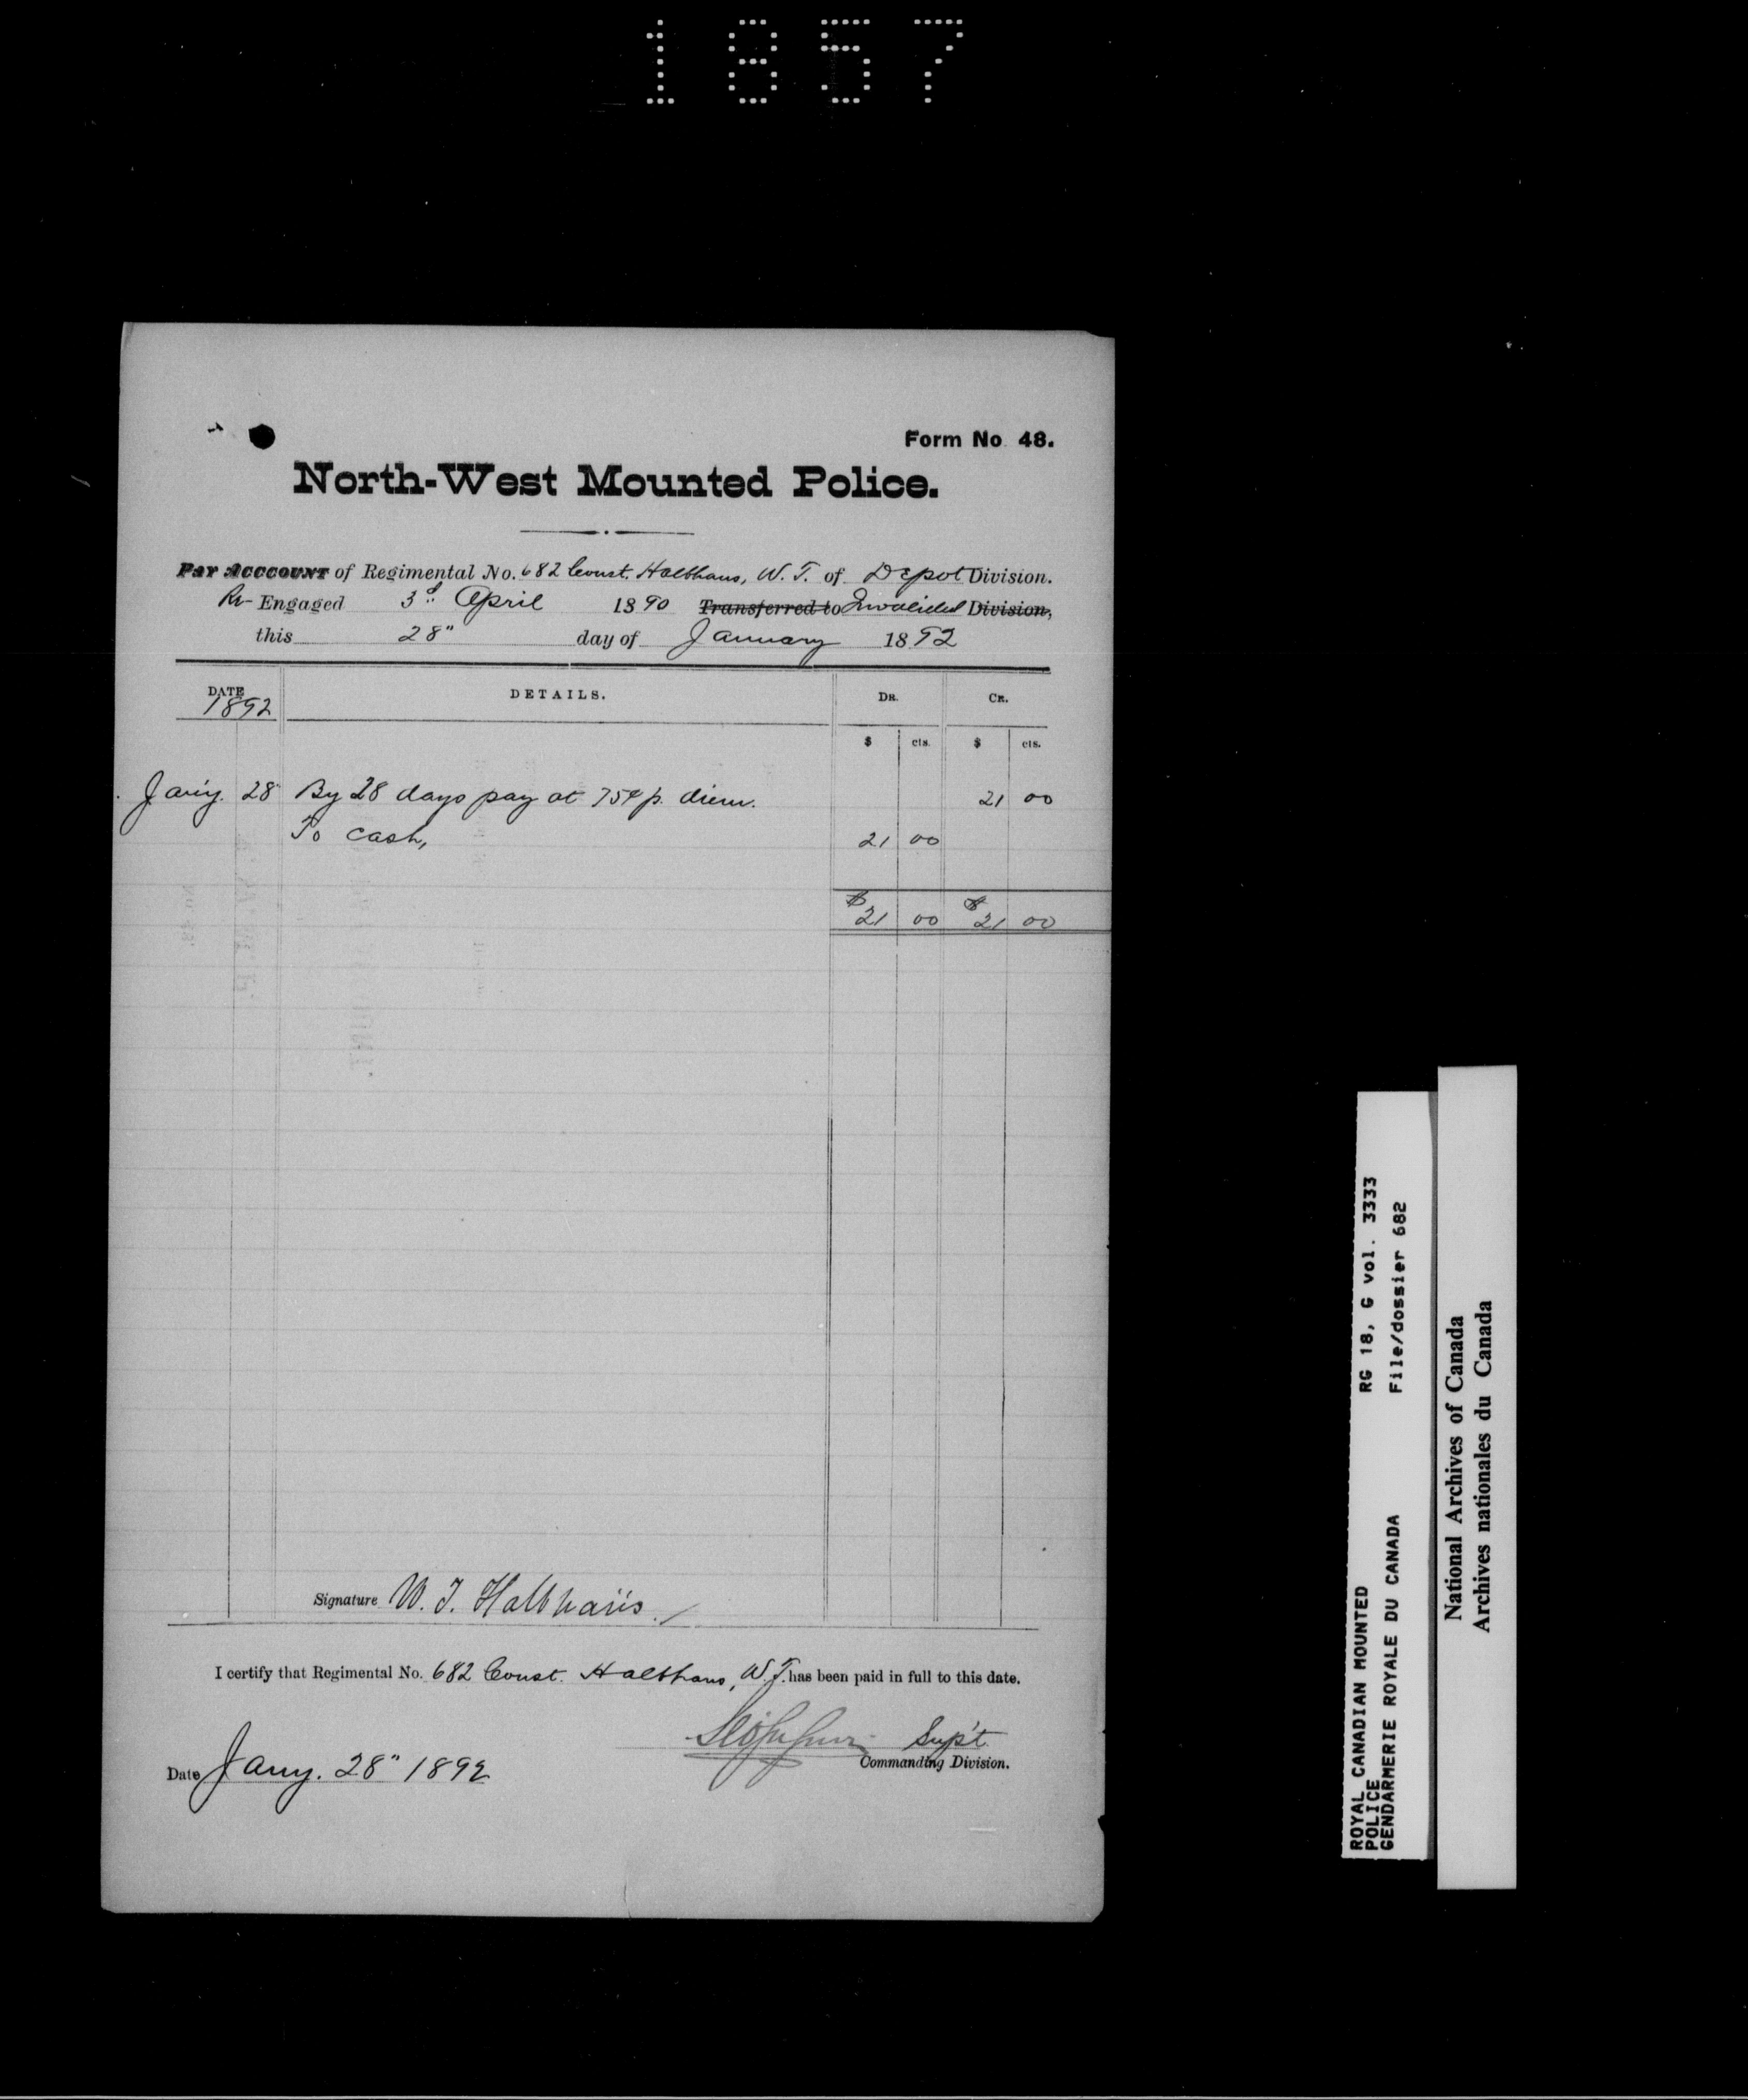 1857
Form No. 48.
North-West Mounted Police.
Pay Acccount of Regimental No. 682 Const. Halbhaus, W. T. of Depot Division.
Re-Engaged 3d April 1890 Transferred to Invalided Division,
this 28" day of January 1892
DATE DETAILS. DR. CR.
1892
$ cts. $ cts.
Jan'y. 28 By 28 days pay at 75¢ p. diem. 21 00
To cash, 21 00
$21 00 $21 00
Signature W. T. Halbhaus.
I certify that Regimental No. 682 Const. Halbhaus, W. T. has been paid in full to this date.
Sup't
Commanding Division.
Date Jany. 28" 1892
ROYAL CANADIAN MOUNTED RG 18, G vol. 3333
POLICE
GENDARMERIE ROYALE DU CANADA File/dossier 682
National Archives of Canada
Archives nationales du Canada